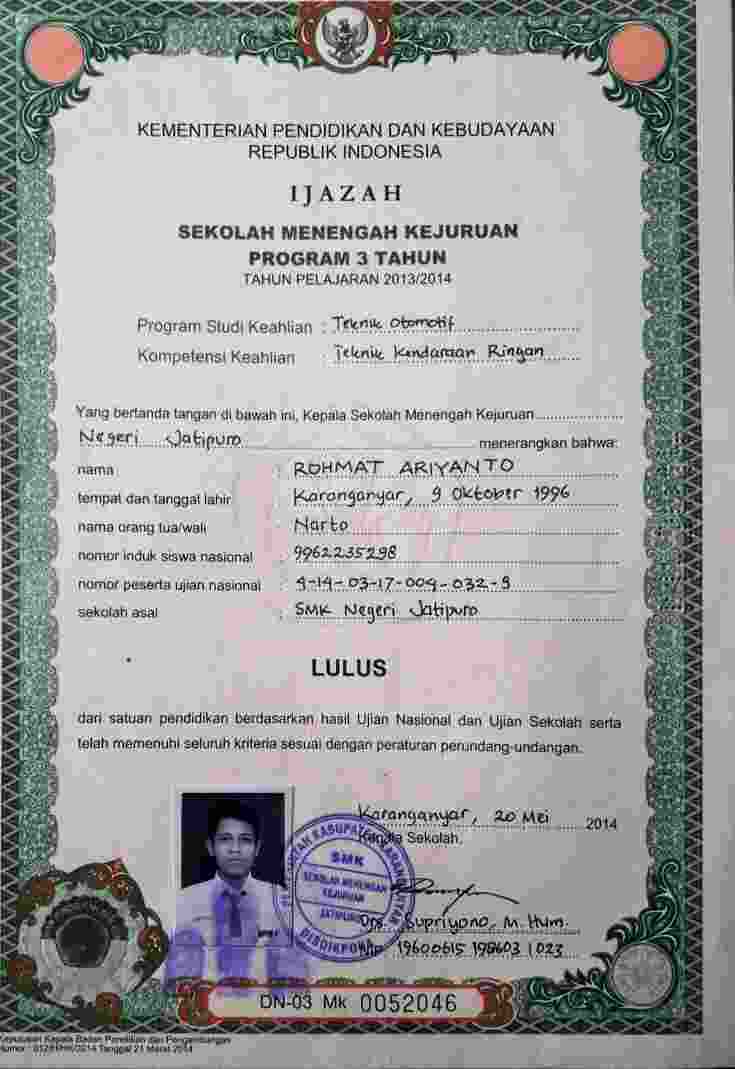 KEMENTERIAN PENDIDIKAN DAN KEBUDAYAAN
REPUBLIK INDONESIA
IJAZAH
SEKOLAH MENENGAH KEJURUAN
PROGRAM 3 TAHUN
TAHUN PELAJARAN 2013/2014
Program Studi Keahlian : Teknik Otomotif
Kompetensi Keahlian : Teknik Kendaraan Ringan
Yang bertanda tangan di bawah ini, Kepala Sekolah Menengah Kejuruan
Negeri Jatipuro menerangkan bahwa:
nama : ROHMAT ARIYANTO
tempat dan tanggal lahir : Karanganyar, 9 Oktober 1996
nama orang tua/wali : Narto
nomor induk siswa nasional : 9962235298
nomor peserta ujian nasional : 4-14-03-17-004-032-9
sekolah asal : SMK Negeri Jatipuro
LULUS
dari satuan pendidikan berdasarkan hasil Ujian Nasional dan Ujian Sekolah serta
telah memenuhi seluruh kriteria sesuai dengan peraturan perundang-undangan.
Karanganyar, 20 Mei 2014
Kepala Sekolah,
SMK
SEKOLAH MENENGAH
KEJURUAN
JATIPURO
DISDIKPORA
Drs. Supriyono, M. Hum.
19600615 198603 1 023
DN-03 Mk 0052046
Keputusan Kepala Badan Penelitian dan Pengembangan
Tanggal 21 Maret 2014